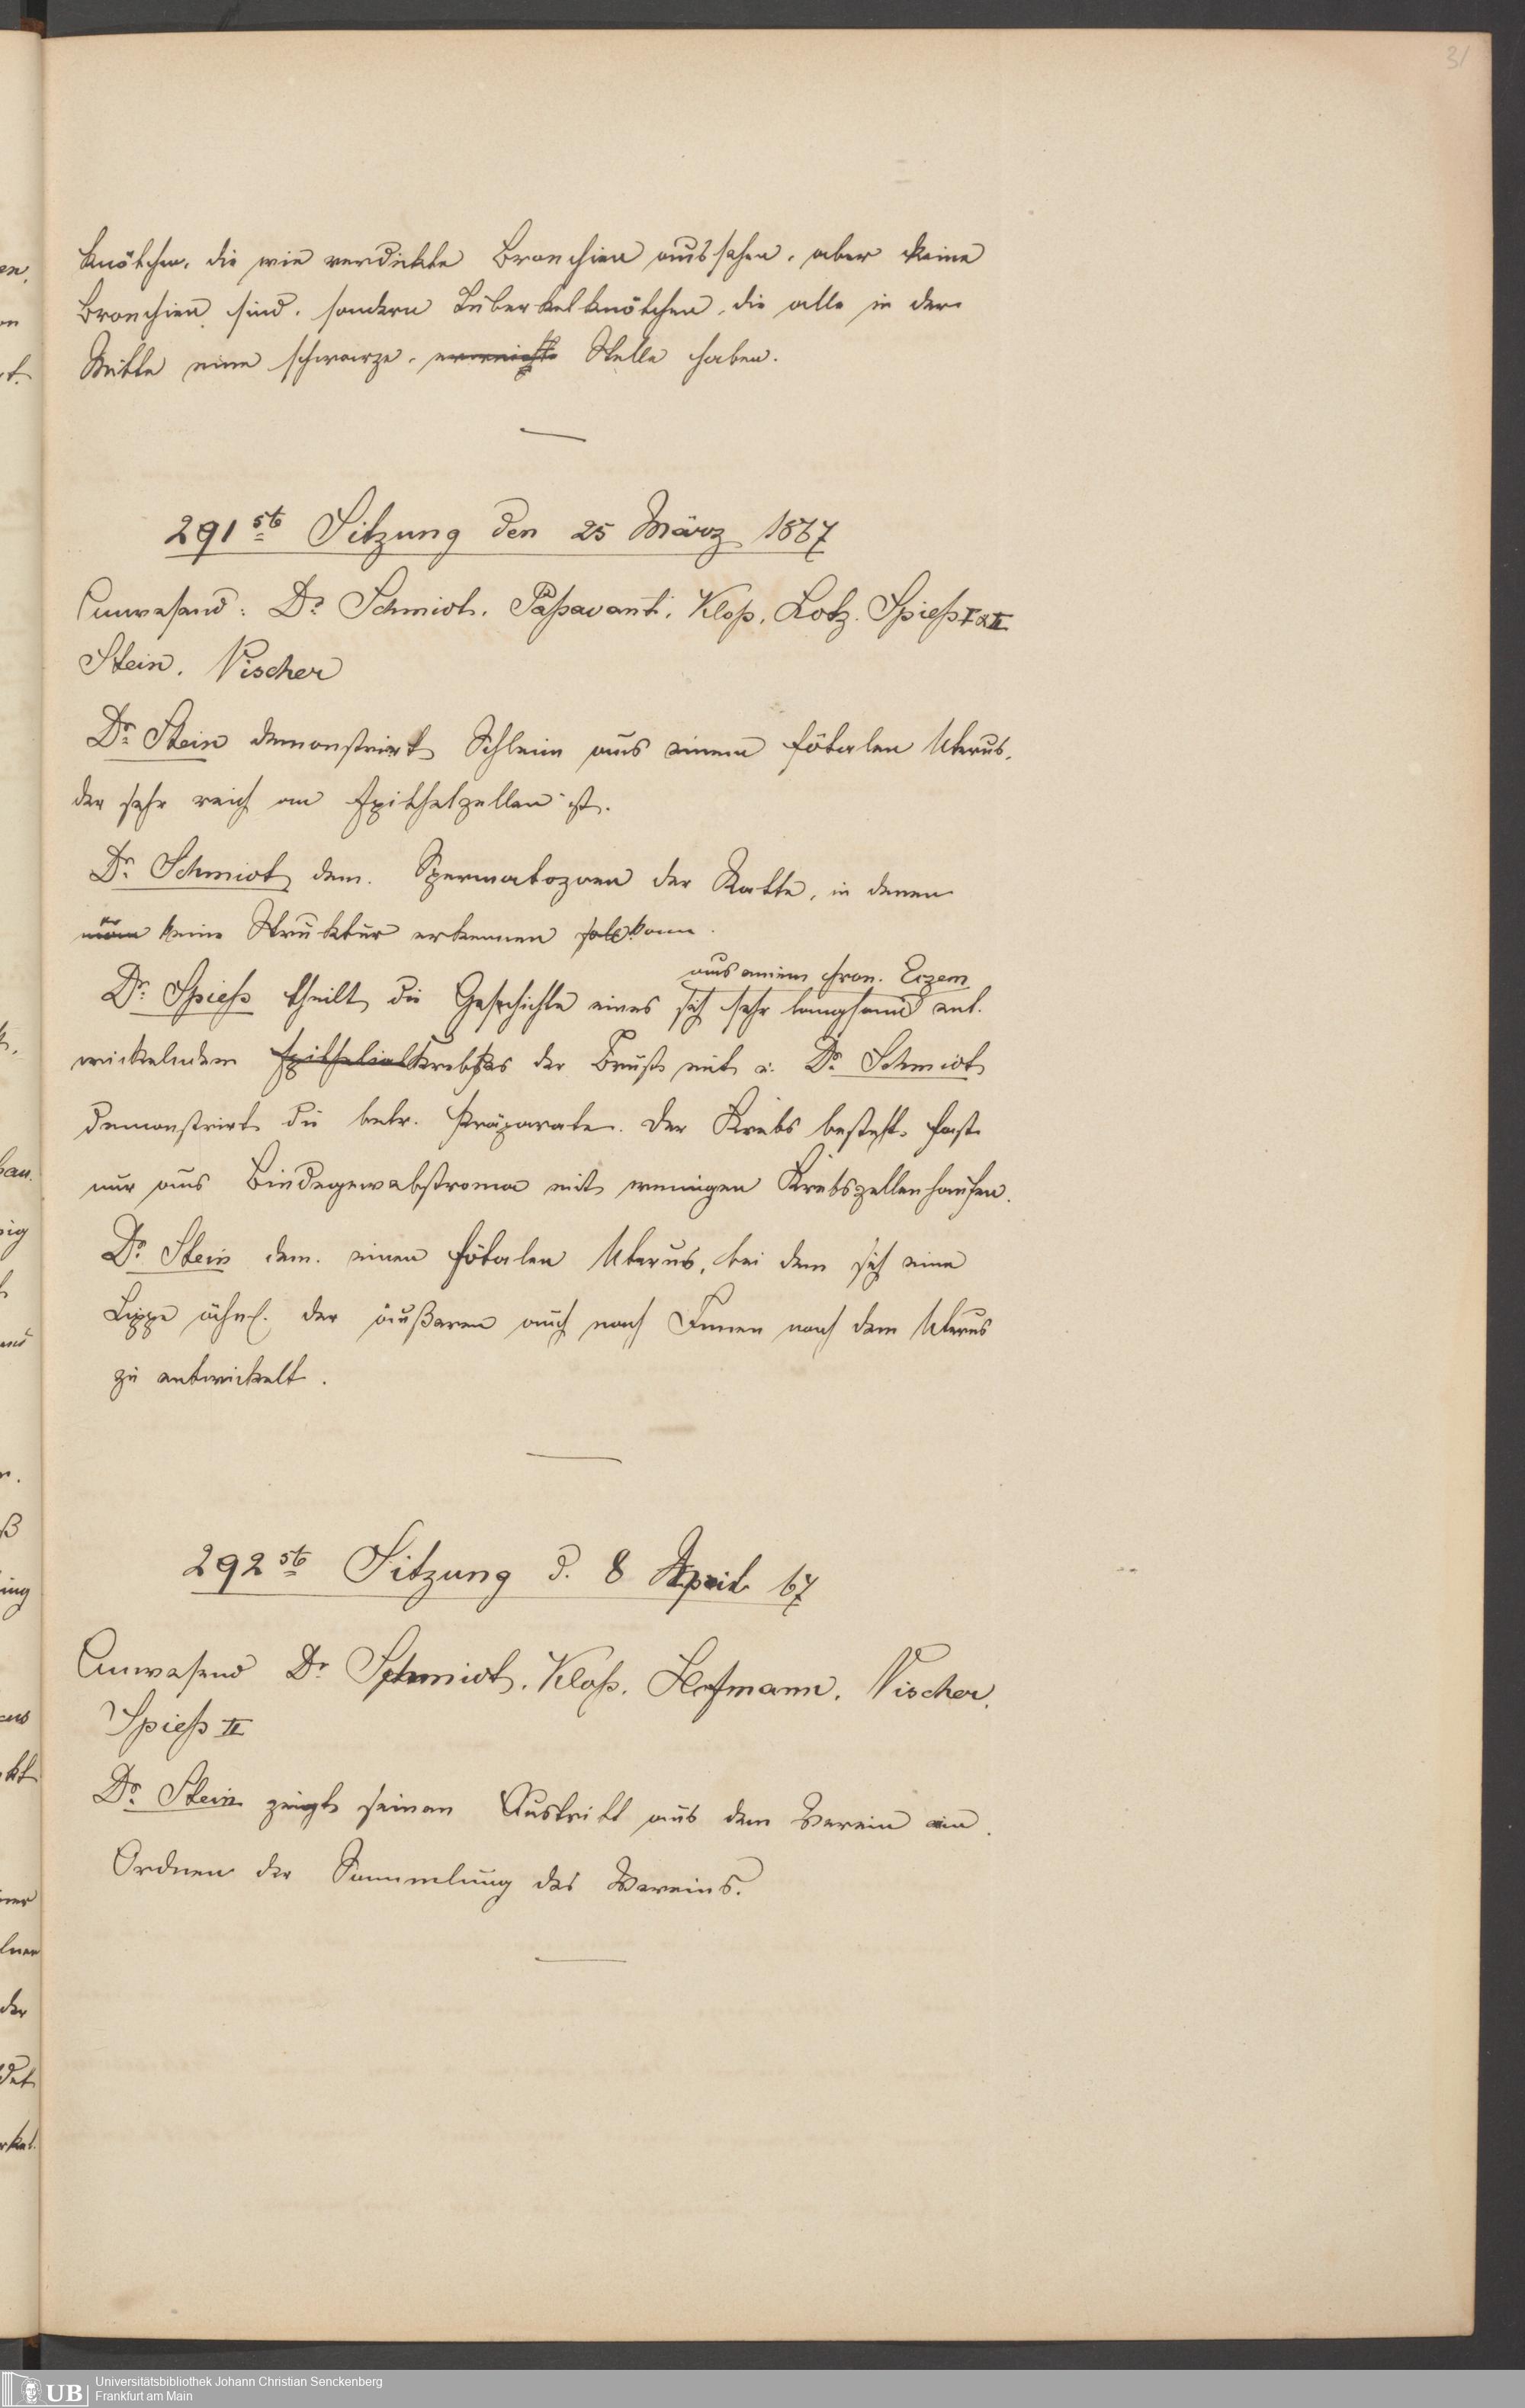 31
Knötchen, die wie verdickte Bronchien aussehen, aber keine
Bronchien sind, sondern Tuberkelknötchen, die alle in der
Mitte eine schwarze, erweichte Stelle haben.
291ste Sitzung den 25 März 1867
Anwesend: Dr Schmidt. Paßavant. Kloß. Lotz. Spieß I & II
Stein. Vischer
Dr. Stein demonstrirt Schleim aus einem fötalen Uterus,
der sehr reich an Epithelzellen ist.
Dr. Schmidt dem. Spermatozoen der Ratte, in denen
man er keine Struktur erkennen kann.
aus einem chron. Eczem
Dr. Spieß theilt die Geschichte eines sich sehr langsam ent-
wickelnden Epithelialkrebses der Brust mit u. Dr. Schmidt
demonstrirt die betr. Präparate. Der Krebs besteht fast
nur aus Bindegewebstroma mit wenigen Krebszellenhaufen.
Dr. Stein dem. einen fötalen Uterus, bei dem sich eine
Lippe ähnl. der äußeren auch nach Innen nach dem Uterus
zu entwickelt.
292ste Sitzung d. 8 April 67
Anwesend Dr. Schmidt. Kloß. Hofmann. Vischer.
Spieß II
Dr. Stein zeigt seinen Austritt aus dem Verein an.
Ordnen der Sammlung des Vereins.
UB
Universitätsbibliothek Johann Christian Senckenberg
Frankfurt am Main